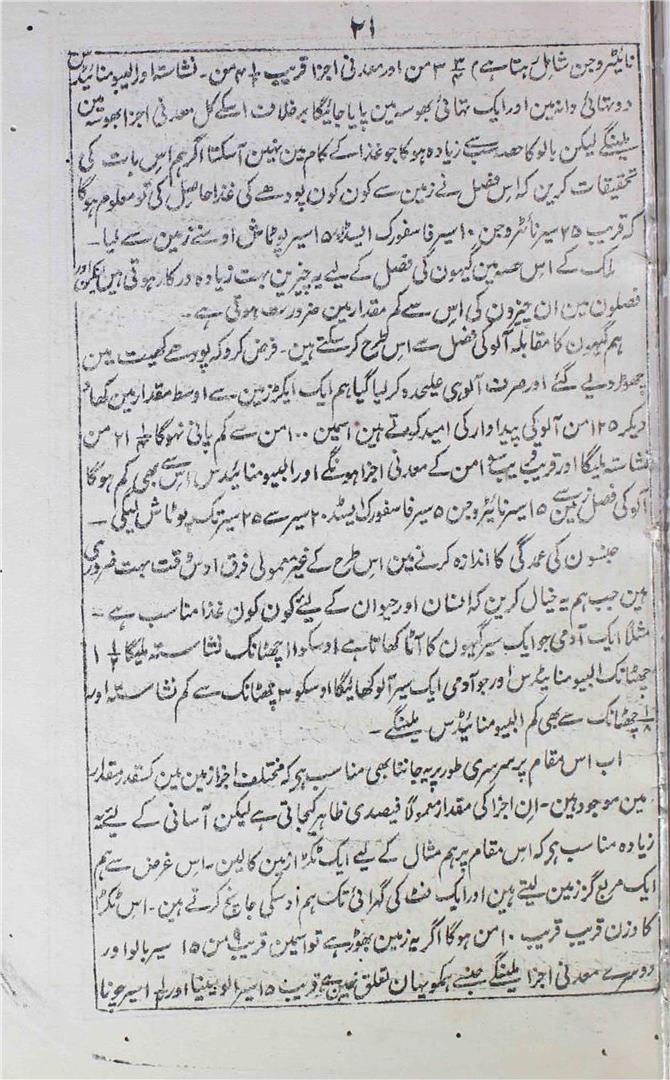 ۲۱
نائیٹروجن شامل رہتا ہے) ۳ ۳/۴ من اور معدنی اجزا قریب ۴ ۱/۲ من۔ نشاستہ اور البیو منائیڈس
دو تہائی دانہ مین اور ایک تہائی بھوسہ مین پایا جائیگا برخلاف اسکے کل معدنی اجزا بھوسہ مین
ملینگے لیکن بالو کا حصہ سب سے زیادہ ہوگا جو غذا کے کام مین نہین آسکتا اگر ہم اس بات کی
تحقیقات کرین کہ اس فصل نے زمین سے کون کون پودھے کی غذا حاصل کی تو معلوم ہوگا
کہ قریب ۲۵ سیر نائٹروجن ۱۰ سیر فاسفورک ایسڈ ۱۵ سیر پوٹاش اوسنے زمین سے لیا۔
ملک کے اس حصہ مین گیہون کی فصل کے لیے یہ چیزین بہت زیادہ درکار ہوتی ہین لیکن اور
فصلون مین ان چیزون کی اس سے کم مقدار مین ضرورت ہوتی ہے۔
ہم گیہون کا مقابلہ آلو کی فصل سے اس طرح کرسکتے ہین۔ فرض کرو کہ پودھے کھیت مین
چھوڑ دیے گئے اور صرف آلو ہی علیحدہ کر لیا گیا ہم ایک ایکڑ زمین سے اوسط مقدار مین کھاد
دیکر ۱۲۵ من آلو کی پیداوار کی امید کرتے ہین اسمین ۱۰۰ من سے کم پانی نہوگا ۲۱ ۱/۲ من
نشاستہ ملیگا اور قریب ۱ من کے معدنی اجزا ہونگے اور البیو منائیڈس اس سے بھی کم ہوگا
آلو کی فصل زمین سے ۱۵ سیر نائیٹروجن ۵ سیر فاسفورک ایسڈ ۲۰ سیر سے ۲۵ سیر تک پوٹاش لیگی۔
جنسون کی عمدگی کا اندازہ کرنے مین اس طرح کے غیر معمولی فرق اوس وقت بہت ضروری
ہین جب ہم یہ خیال کرین کہ انسان اور حیوان کے لیے کون کون غذا مناسب ہے۔
مثلاً ایک آدمی جو ایک سیر گیہون کا آٹا کھاتا ہے اوسکو ۱۱ چھٹانک نشاستہ ملیگا ۱ ۱/۲
چھٹانک البیو منائیڈس اور جو آدمی ایک سیر آلو کھائیگا اوسکو ۳ چھٹانک سے کم نشاستہ اور
۱/۸ چھٹانک سے بھی کم البیو منائیڈس ملینگے۔
اب اس مقام پر سرسری طور پر یہ جاننا بھی مناسب ہی کہ مختلف اجزا زمین مین کسقدر مقدار
مین موجود ہین۔ ان اجزا کی مقدار معمولاً فیصدی ظاہر کیجاتی ہے لیکن آسانی کے لیے یہ
زیادہ مناسب ہی کہ اس مقام پر ہم مثال کے لیے ایک ٹکڑا زمین کا لین۔ اس غرض سے ہم
ایک مربع گز زمین لیتے ہین اور ایک فٹ کی گہرائی تک ہم اوسکی جانچ کرتے ہین۔ اس ٹکڑا
کا وزن قریب قریب ۱۰ من ہوگا اگر یہ زمین بھوڑ ہے تو اسمین قریب ۹ من ۱۵ سیر بالو اور
دوسرے معدنی اجزا ملینگے جنسے ہمکو یہان تعلق نہین ہے قریب ۱۵ سیر الومینا اور ۱ ۱/۲ سیر چونا